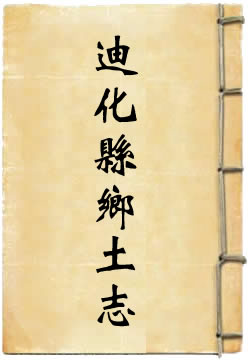 迪化縣鄉土志